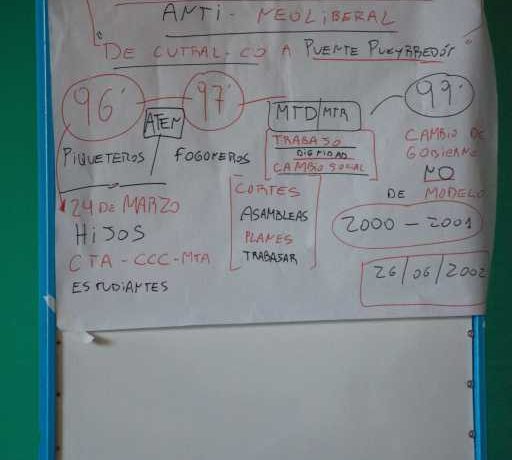 ANTI - NEOLIBERAL
"DE CUTRAL-CO A PUENTE PUEYRREDÓN"
96' 97' MTD/MTR 99'
ATEN
PIQUETEROS FOGONEROS
TRABAJO
DIGNIDAD
CAMBIO SOCIAL
CAMBIO DE
GOBIERNO
NO
DE MODELO
24 DE MARZO
HIJOS
CTA - CCC - MTA
ESTUDIANTES
CORTES
ASAMBLEAS
PLANES
TRABAJAR
2000 - 2001
26/06/2002